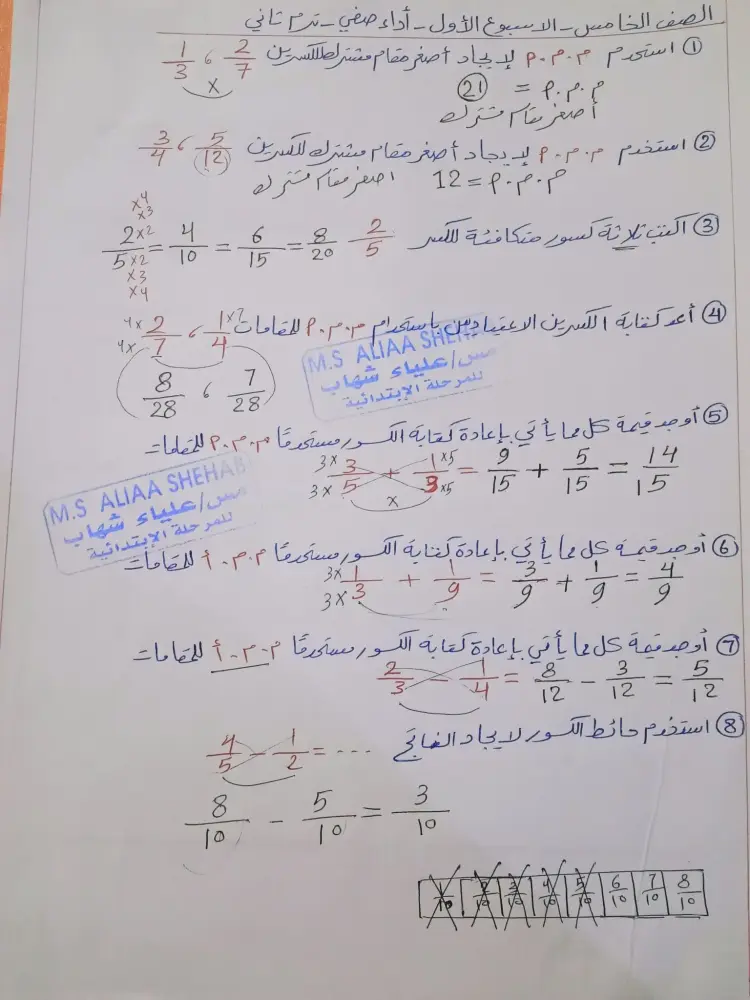 الصف الخامس - الاسبوع الأول - أداء صفي - ترم تاني
① استخدم م.م.م لإيجاد أصغر مقام مشترك للكسرين 2/7 ، 1/3
×
م.م.م = 21
أصغر مقام مشترك
② استخدم م.م.م لإيجاد أصغر مقام مشترك للكسرين 5/12 ، 3/4
م.م.م = 12 اصغر مقام مشترك
③ اكتب ثلاثة كسور متكافئة للكسر 2/5
×4
×3
2×2/5×2 = 4/10 = 6/15 = 8/20
×3
×4
④ أعد كتابة الكسرين الاعتياديين باستخدام م.م.م للمقامات
4× 2/4× 7 ، 1×7/4
8/28 ، 7/28
M.S ALIAA SHEHAB
مس/علياء شهاب
للمرحلة الإبتدائية
⑤ أوجد قيمة كل مما يأتي بإعادة كتابة الكسور مستخدمًا م.م.م للمقامات
3× 3/3× 5 + 1×5/3×5 = 9/15 + 5/15 = 14/15
×
M.S ALIAA SHEHAB
مس/علياء شهاب
للمرحلة الإبتدائية
⑥ أوجد قيمة كل مما يأتي بإعادة كتابة الكسور مستخدمًا م.م.أ للمقامات
3× 1/3× 3 + 1/9 = 3/9 + 1/9 = 4/9
⑦ أوجد قيمة كل مما يأتي بإعادة كتابة الكسور مستخدمًا م.م.أ للمقامات
2/3 - 1/4 = 8/12 - 3/12 = 5/12
⑧ استخدم حائط الكسور لايجاد الناتج
4/5 - 1/2 = ...
8/10 - 5/10 = 3/10
1/10 2/10 3/10 4/10 5/10 6/10 7/10 8/10